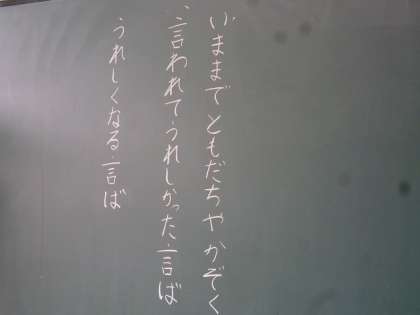 いままでともだちやかぞく
に言われてうれしかった言ば
うれしくなる言ば